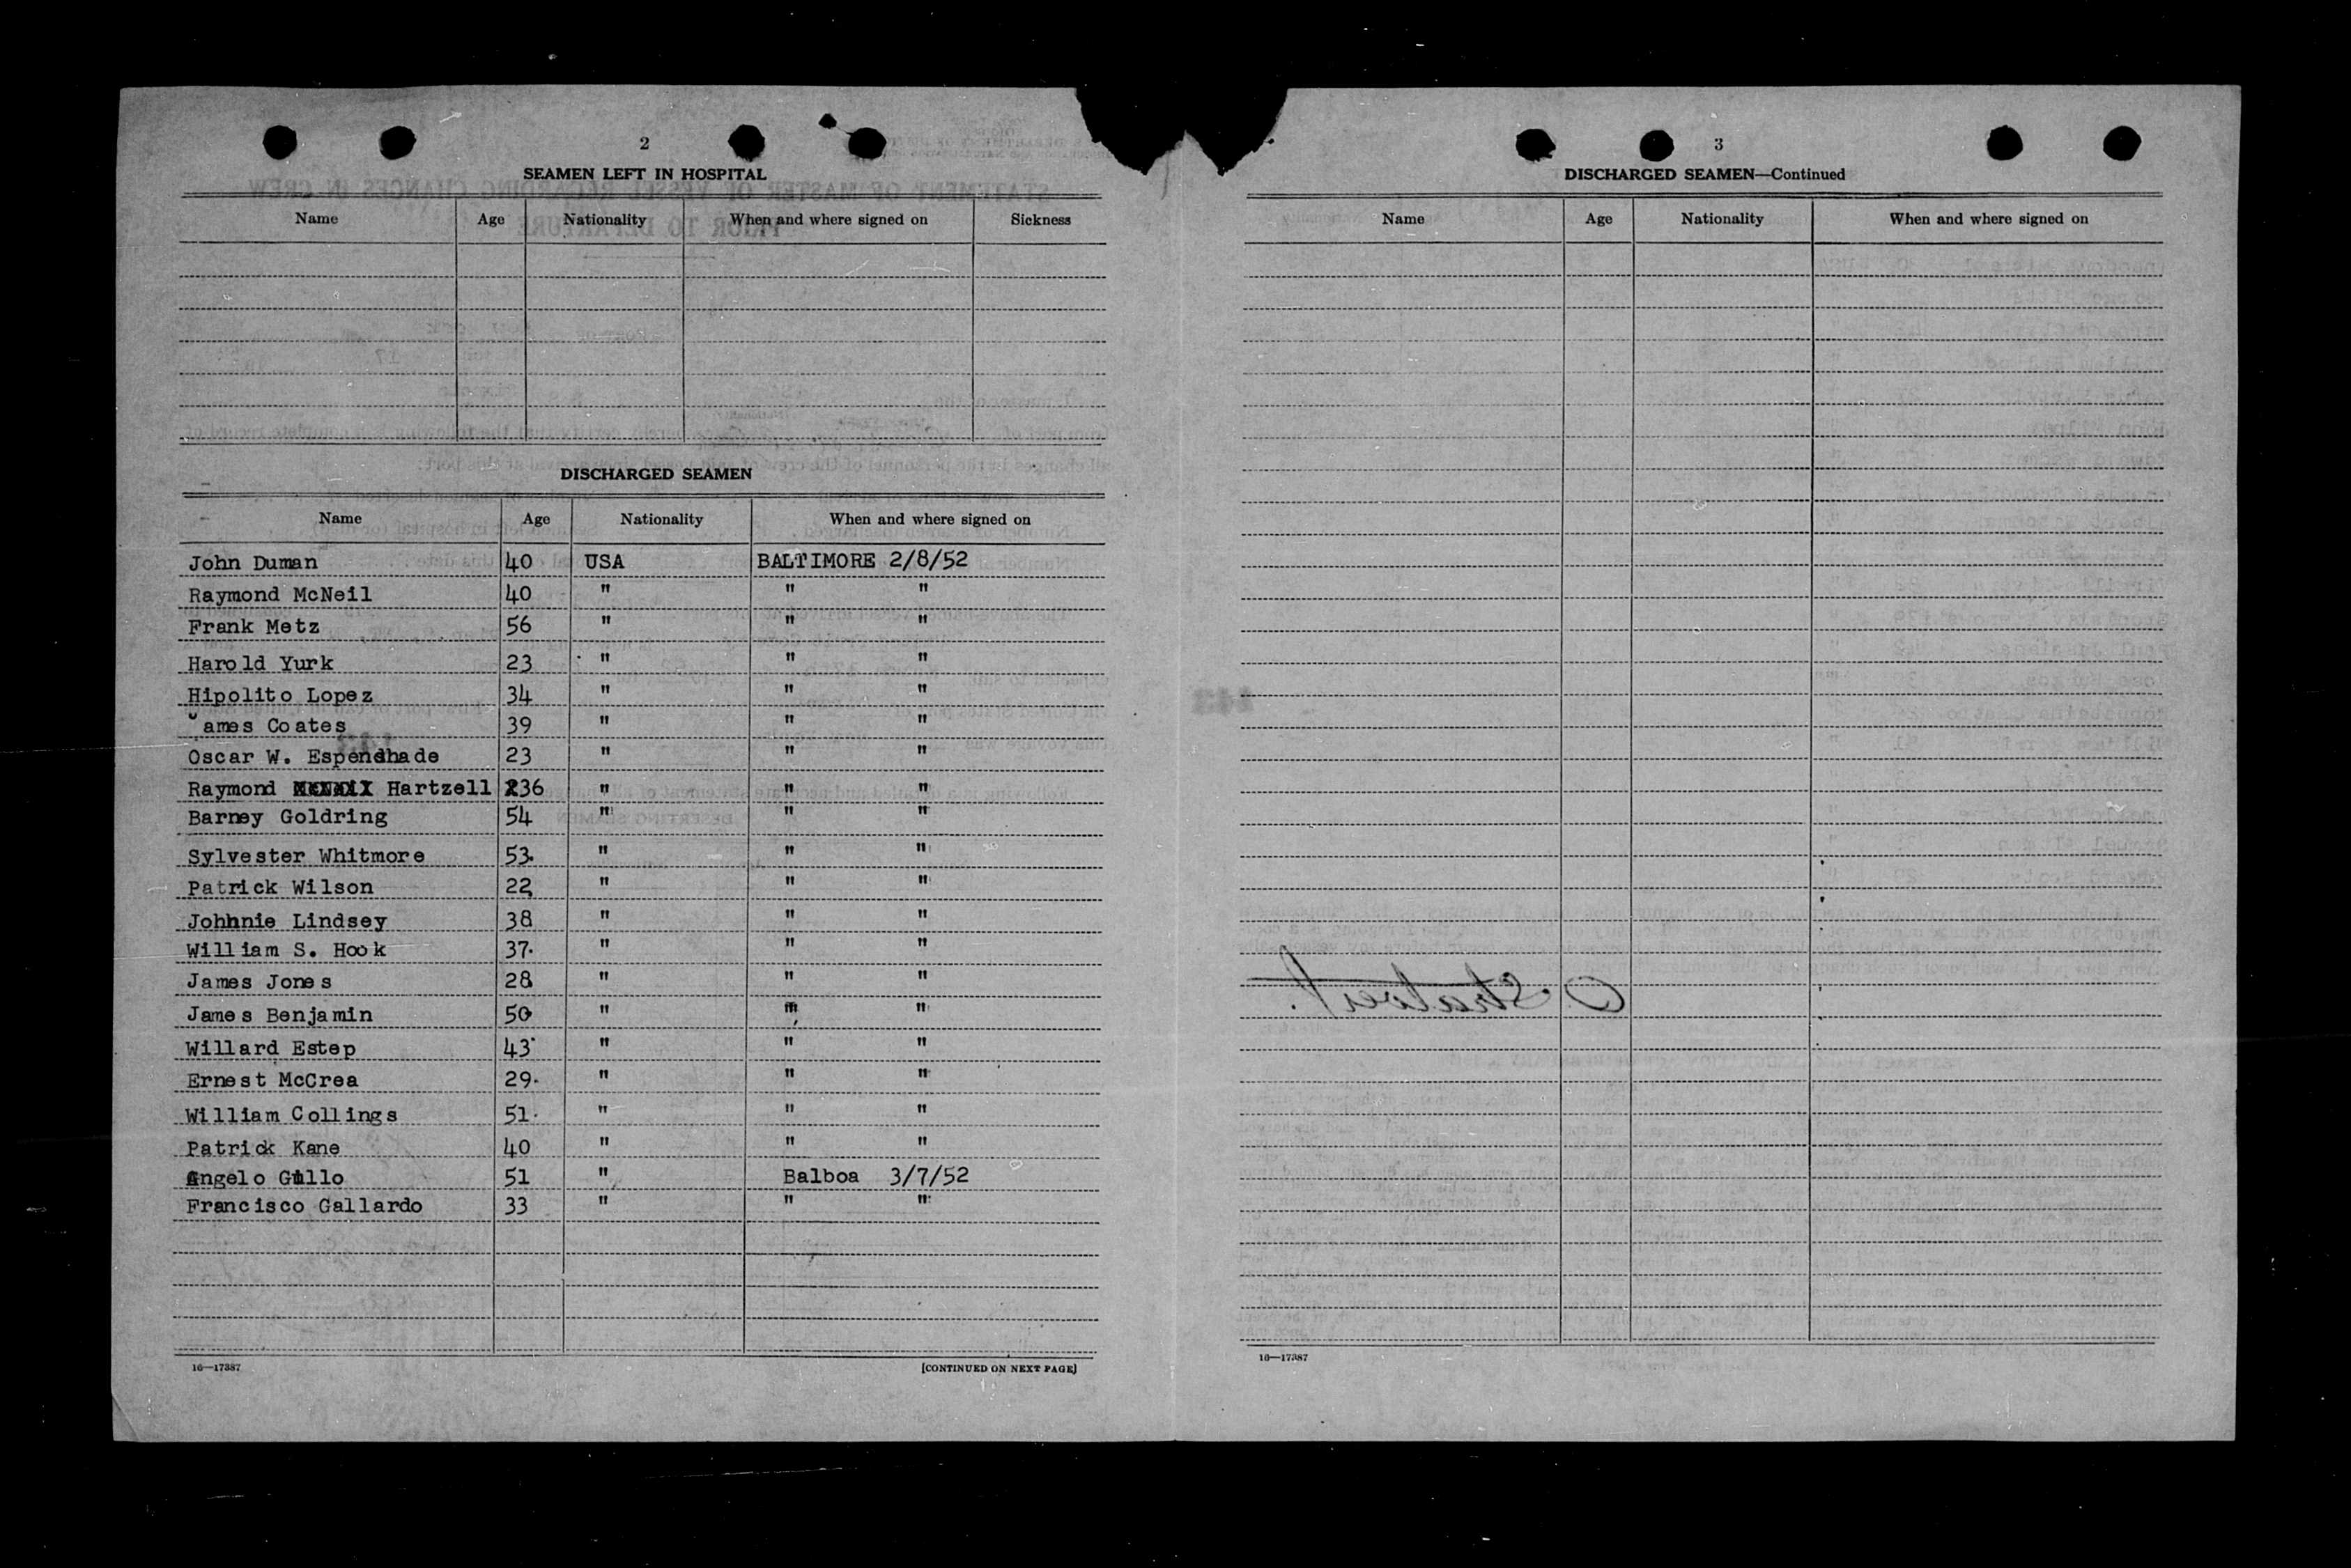 2
SEAMEN LEFT IN HOSPITAL
Name Age Nationality When and where signed on Sickness
DISCHARGED SEAMEN
Name Age Nationality When and where signed on
John Duman 40 USA BALTIMORE 2/8/52
Raymond McNeil 40 " " "
Frank Metz 56 " " "
Harold Yurk 23 " " "
Hipolito Lopez 34 " " "
James Coates 39 " " "
Oscar W. Espenshade 23 " " "
Raymond Hartzell 36 " " "
Barney Goldring 54 " " "
Sylvester Whitmore 53 " " "
Patrick Wilson 22 " " "
Johnnie Lindsey 38 " " "
William S. Hook 37 " " "
James Jones 28 " " "
James Benjamin 50 " " "
Willard Estep 43 " " "
Ernest McCrea 29 " " "
William Collings 51 " " "
Patrick Kane 40 " " "
Angelo Gullo 51 " Balboa 3/7/52
Francisco Gallardo 33 " " "
16—17387
[CONTINUED ON NEXT PAGE]
3
DISCHARGED SEAMEN—Continued
Name Age Nationality When and where signed on
16—17387